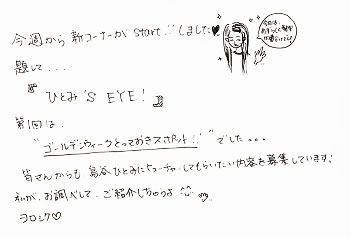 今週から 新コーナーが start!! しました♥
題して...
『ひとみ 'S EYE!』
第1回は、
"ゴールデンウィークとっておきスポット!!" でした...
皆さんからも 島谷ひとみにフューチャーしてもらいたい内容を募集しています!
私が、お調べして、ご紹介しちゃうよ
ヨロシク♡
今回は、